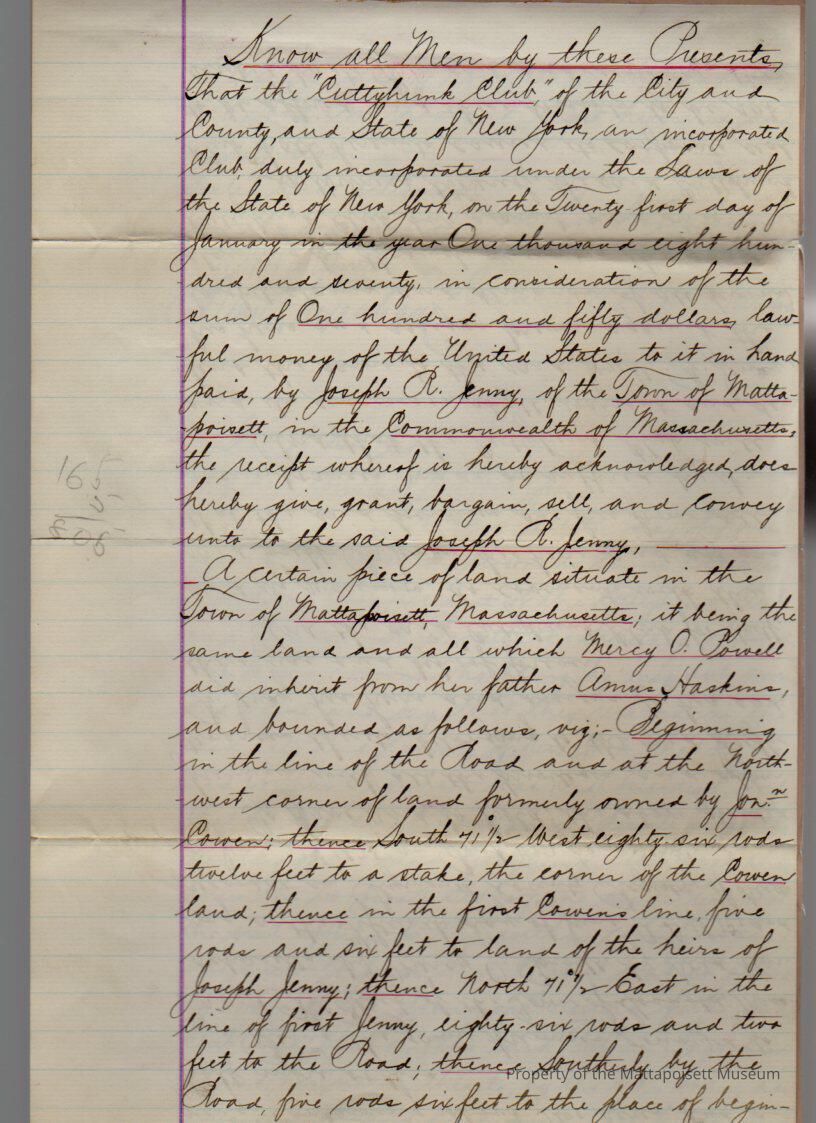 Know all Men by these Presents,
That the "Cuttyhunk Club," of the City and
County, and State of New York, an incorporated
Club, duly incorporated under the Laws of
the State of New York, on the Twenty first day of
January in the year One thousand eight hun-
-dred and seventy, in consideration of the
sum of One hundred and fifty dollars, law-
ful money of the United States to it in hand
paid, by Joseph R. Jenny, of the Town of Matta-
-poisett, in the Commonwealth of Massachusetts,
the receipt whereof is hereby acknowledged, does
hereby give, grant, bargain, sell, and convey
unto to the said Joseph R. Jenny,
A certain piece of land situate in the
Town of Mattapoisett, Massachusetts; it being the
same land and all which Mercy O. Powell
did inherit from her father Amus Haskins,
and bounded as follows, viz;- Beginning
in the line of the Road and at the North-
-west corner of land formerly owned by Jon.n
Cowen; thence South 71°1/2 West, eighty-six rods
twelve feet to a stake, the corner of the Cowen
land; thence in the first Cowen's line, five
rods and six feet to land of the heirs of
Joseph Jenny; thence North 71°1/2 East in the
line of first Jenny, eighty-six rods and two
feet to the Road; thence Southerly by the
Road, five rods six feet to the place of begin-
Property of the Mattapoisett Museum